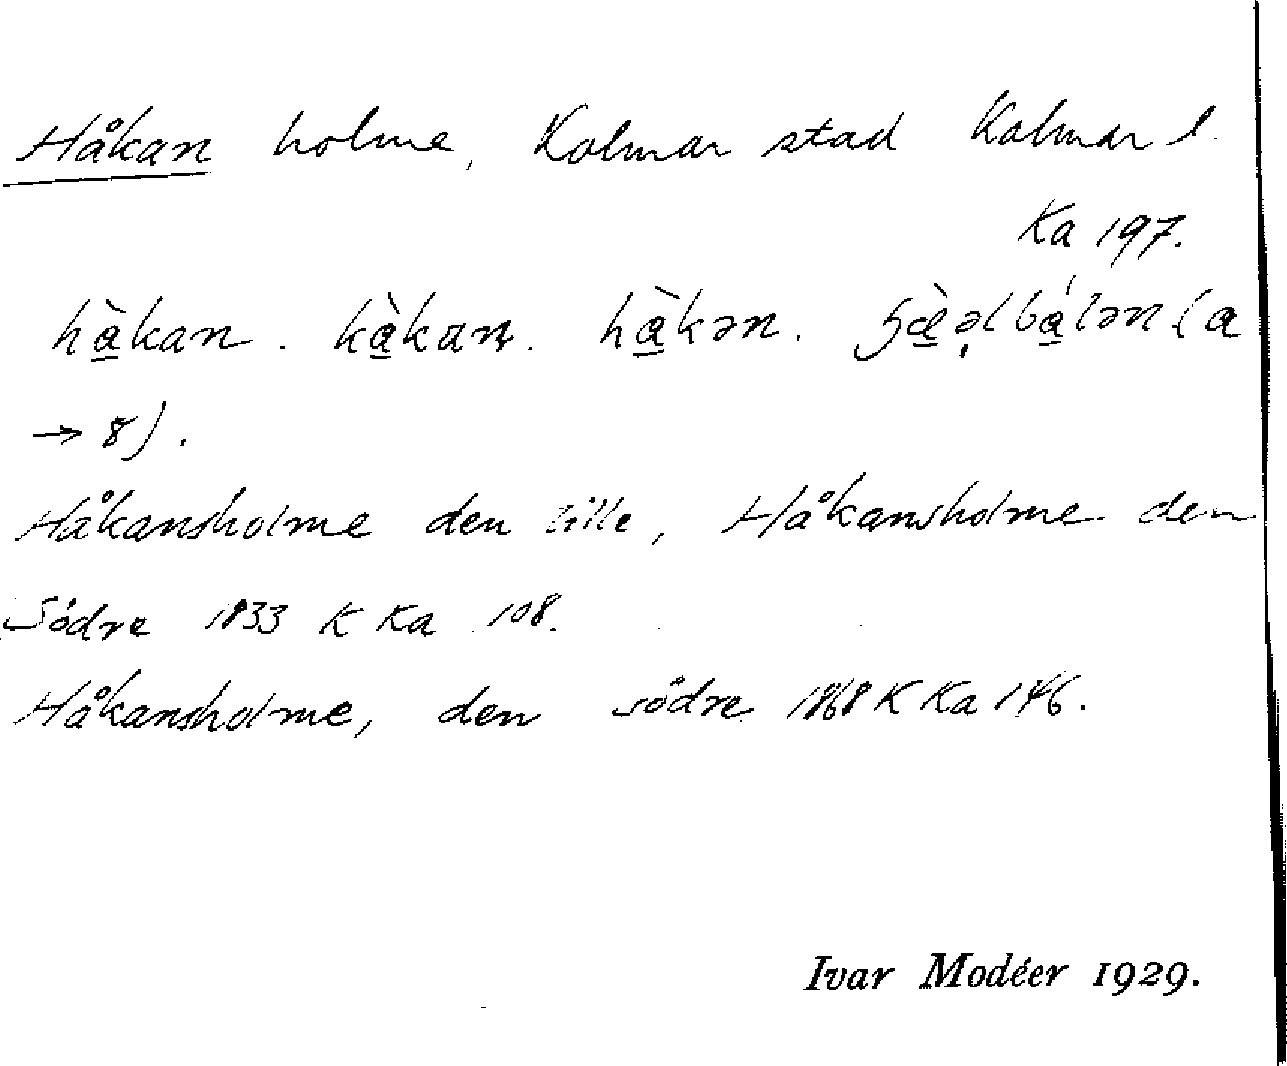 Håkan holme, Kalmar stad Kalmar l.
Ka 197.
hàkan. kàkan. hàkən.
→ 8).
Håkansholme den lille, Håkansholme den
Södre 1833 K Ka 108.
Håkansholme, den södre 1868 K Ka 146.
Ivar Modéer 1929.